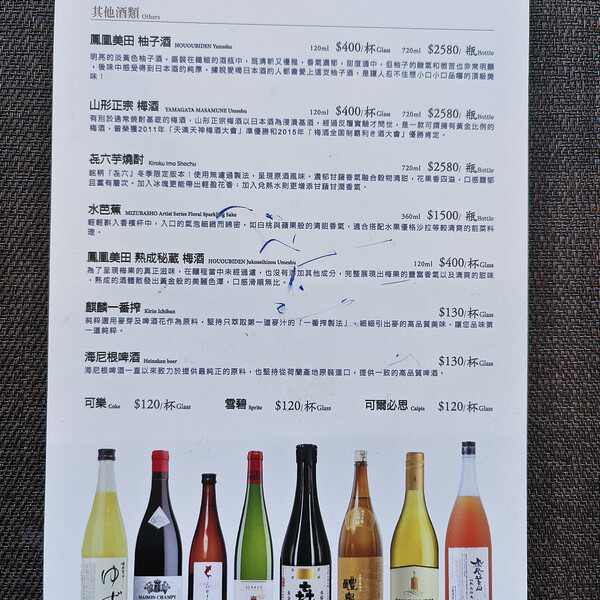 其他酒類 Others
鳳凰美田 柚子酒 HOUOUBIDEN Yuzushu 120ml $400/杯Glass 720ml $2580/ 瓶Bottle
明亮的淡黃色柚子酒，盛裝在纖細的酒瓶中，既清新又優雅，香氣濃郁，甜度適中，但柚子的酸氣和微苦也非常明顯
，後味中感受得到日本酒的純厚，據說愛喝日本酒的人都會愛上這支柚子酒，是讓人忍不住想小口小口品嚐的頂級美
味！
山形正宗 梅酒 YAMAGATA MASAMUNE Umeshu 120ml $400/杯Glass 720ml $2580/ 瓶Bottle
有別於通常燒酎基底的梅酒，山形正宗梅酒以日本酒為浸漬基酒，經過反覆實驗才問世，是一款可謂擁有黃金比例的
梅酒，曾榮獲2011年「天滿天神梅酒大會」準優勝和2015年「梅酒全国利き酒大會」優勝肯定。
㐂六芋燒酎 Kiroku Imo Shochu 720ml $2580/ 瓶Bottle
銘柄「㐂六」冬季限定版本！使用無濾過製法，呈現原酒風味，濃郁甘藷香氣融合穀物清甜，花果香四溢，口感馥郁
且富有層次。加入冰塊更能帶出輕盈花香！加入兌熱水則更增添甘藷甘潤香氣。
水芭蕉 MIZUBASHO Artist Series Floral Sparkling Sake 360ml $1500/ 瓶Bottle
輕輕斟入香檳杯中，入口的氣泡細緻而綿密，如白桃與蘋果般的清甜香氣，適合搭配水果優格沙拉等較清爽的前菜料
理。
鳳凰美田 熟成秘藏 梅酒 HOUOUBIDEN Jukuseihizou Umeshu 120ml $400/杯Glass
為了呈現梅果的真正滋味，在釀程當中未經過濾，也沒有添加其他成分，完整展現出梅果的豐富香氣以及清爽的甜味
，熟成的酒體散發出黃金般的美麗色澤，口感滑順無比。
麒麟一番搾 Kirin Ichiban $130/杯Glass
純粹選用麥芽及啤酒花作為原料，堅持只萃取第一道麥汁的「一番搾製法」，細細引出麥的高品質美味，讓您品味第
一道純粹。
海尼根啤酒 Heineken beer $130/杯Glass
海尼根啤酒一直以來致力於提供最純正的原料，也堅持從荷蘭產地原裝進口，提供一致的高品質啤酒。
可樂 Coke $120/杯Glass 雪碧 Sprite $120/杯Glass 可爾必思 Calpis $120/杯Glass
ゆず
MAISON CHAMPY
ALSACE